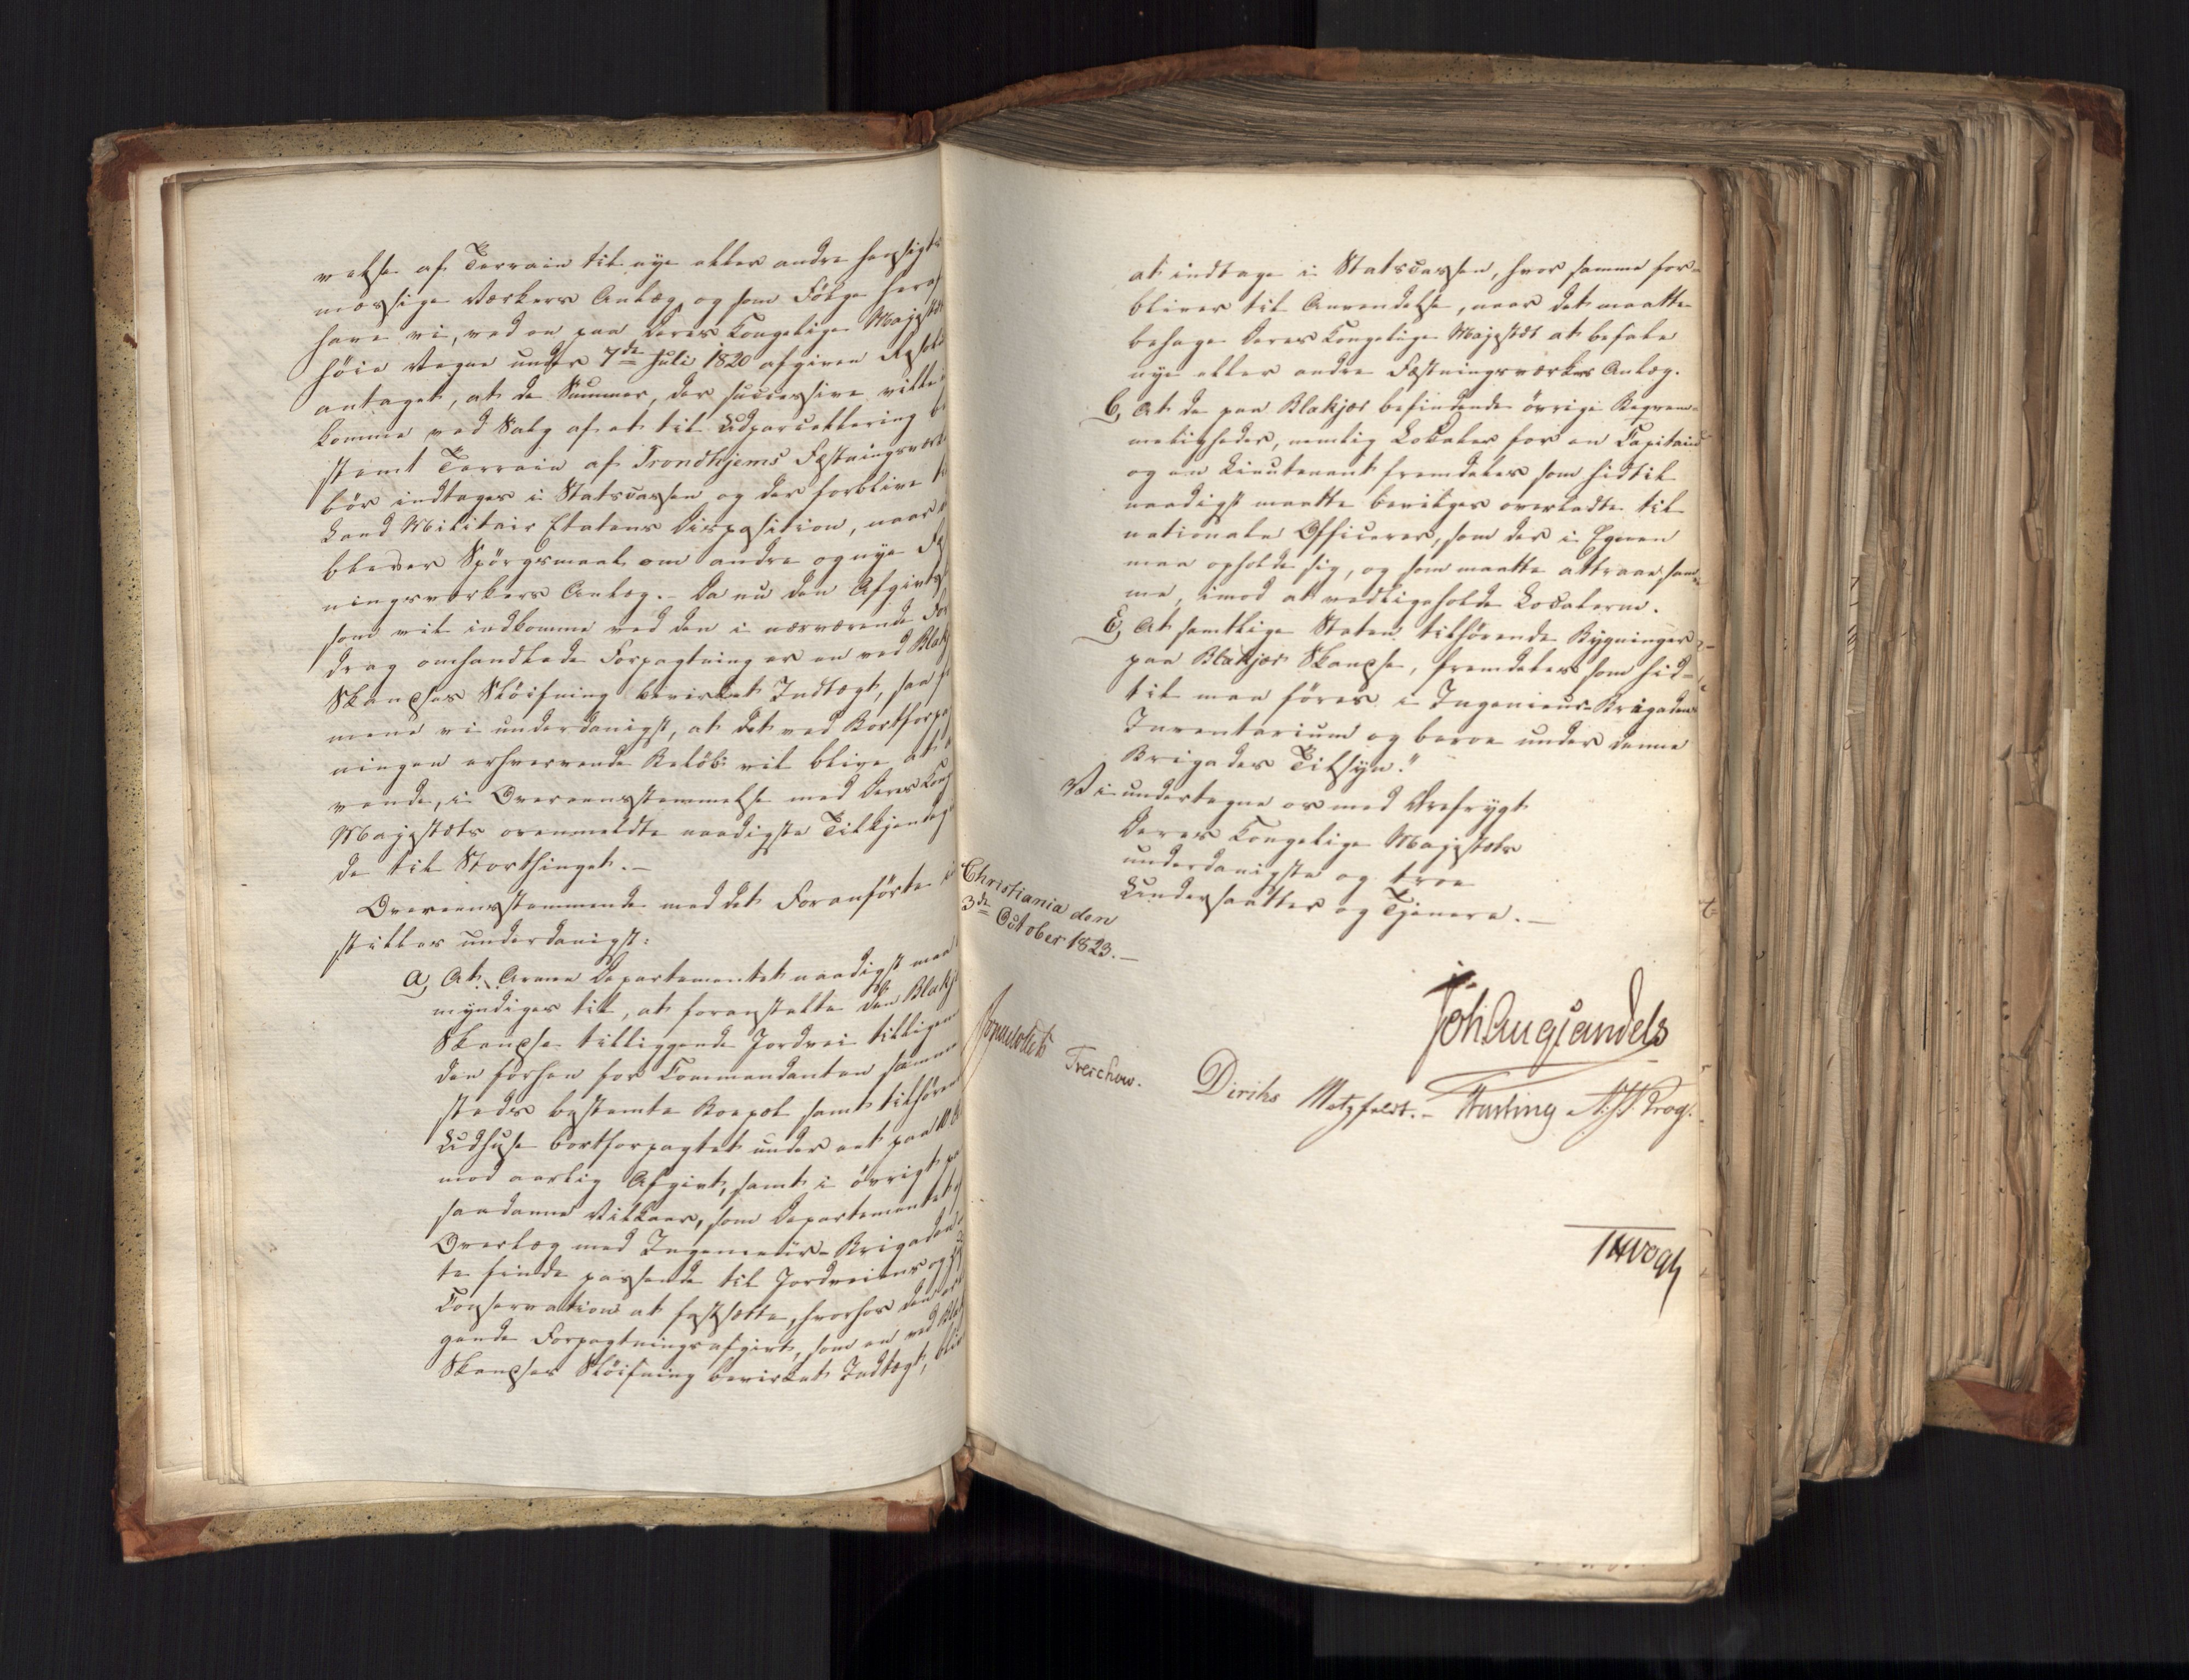 velse af Terrain til nye eller andre hensigts
mæssige Værkers Anlæg, og som Følge heraf
have vi, ved en paa Deres Kongelige Majestæts
høie Vegne under 7de Juli 1820 afgiven Resol
antaget, at de Summer, der successive ville
komme ved Salg af et til Udparcellering be
stemt Terrain af Trondhjems Fæstningsværk
bør indtages i Statscassen og der forblive til
Land Militair Etatens Disposition, naar
bliver Spörgsmaal om andre og nye Fæst
ningsværkers Anlæg. - Da nu den Afgivt,
som vil indkomme ved den i nærværende Fore
drag omhandlede Forpagtning er en ved Blakj
Skandses Slöifning bevirket Indtægt, saa for
mene vi underdanigst, at det ved Bortforpagt
ningen erhvervende Belöb vil blive at
vende, i Overeensstemmelse med Deres Kong
Majestæts ovenmeldte naadigste Tilkjendegi
de til Storthinget. -
Overeensstemmende med det Foranförte ind
stilles underdanigst:
a, At Armee Departementet naadigst maa be
myndiges til, at foranstalte den Blakj
Skandse tilliggende Jordvei tilligemed
den forhen for Commandanten samme
steds bestemte Boepæl samt tilhörende
Udhuse bortforpagtet under eet paa
mod aarlig Afgivt, samt i övrigt paa
saadanne Vilkaar, som Departementet efter
Overlæg med Ingenieur-Brigaden
te finde passende til Jordveiens og
Conservation at fastsætte, hvorhos den
gende Forpagtningsafgivt, som en ved Blakj
Skandses Slöifning bevirket Indtægt, bliver
at indtage i Statscassen, hvor samme for-
bliver til Anvendelse, naar det maatte
behage Deres Kongelige Majestæt at befale
nye eller andre Fæstningsværkers Anlæg.
b, At de paa Blakjer befindende övrige Beqvem-
meligheder, nemlig Localer for en Capitain
og en Lieutenant fremdeles som hidtil
naadigst maatte bevilges overladte til
nationale Officerer, som der i Egnen
maa opholde sig, og som maatte attraae sam-
me, imod at vedligeholde Localerne.
c, At samtlige Staten tilhörende Bygninger
paa Blakjer Skandse, fremdeles som hid-
til maa föres i Ingenieur-Brigadens
Inventarium og beroe under denne
Brigades Tilsyn."
Vi undertegne os med Ærefrygt
Deres Kongelige Majestæts
underdanigste og troe
Undersaatter og Tjenere. -
Christiania den
3de October 1823. -
Joh Aug Sandels
Sommerhielm
Treschow.
Diriks
Motzfeldt. -
Fasting
Krog.
JHVogt